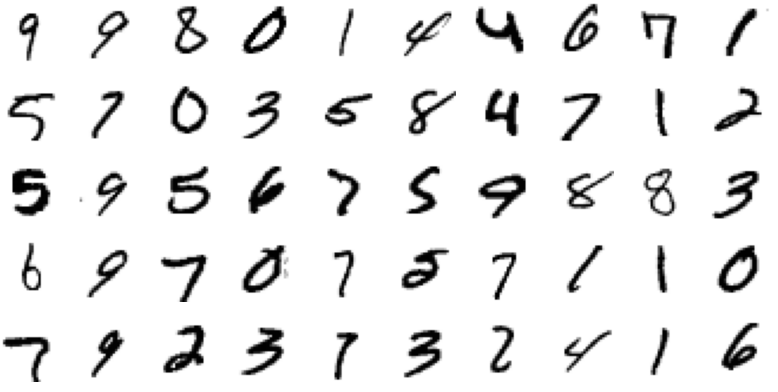 9 9 8 0 1 4 4 6 7 1
5 7 0 3 5 8 4 7 1 2
5 9 5 6 7 5 9 8 8 3
6 9 7 0 7 5 7 1 1 0
7 9 2 3 7 3 2 4 1 6